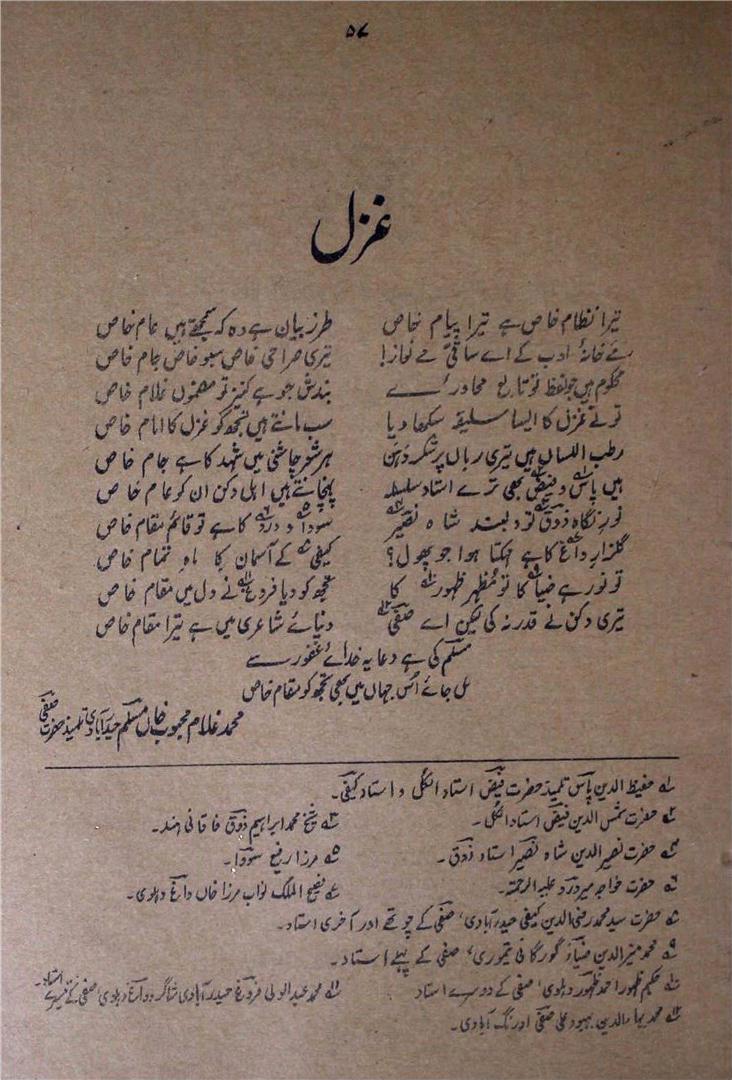 ۵۷
غزل
تیرا نظام خاص ہے تیرا پیام خاص طرزِ بیان ہے وہ کہ سمجھتے ہیں عام خاص
مے خانۂ ادب کے اے ساقیٔ مے نواز! تیری صراحی خاص سبو خاص جام خاص
محکوم ہیں جو لفظ تو تابع محاورے بندش جو ہے کنیز تو مضموں غلام خاص
تو نے غزل کا ایسا سلیقہ سکھا دیا سب مانتے ہیں تجھ کو غزل کا امام خاص
رطب اللساں ہیں تیری زباں پر شکر دہن ہر شعر چاشنی میں شہد کا ہے جام خاص
ہیں پاسؔ۱ و فیضؔ۲ بھی ترے استاد سلسلہ پہچانتے ہیں اہل دکن ان کو عام خاص
نورِ نگاہِ ذوقؔ۳ تو دلبند شاہ نصیرؔ۴ سوداؔ۵ و دردؔ۶ کا ہے تو قائم مقام خاص
گلزارِ داغؔ۷ کا ہے مہکتا ہوا جو پھول؟ کیفیؔ۸ کے آسمان کا ماہِ تمام خاص
تو نور ہے ضیاؔ۹ کا تو مظہر ظہورؔ۱۰ کا تجھ کو دیا فروغؔ۱۱ نے دل میں مقام خاص
تیری دکن نے قدر نہ کی لیکن اے صفیؔ۱۲ دنیائے شاعری میں ہے تیرا مقام خاص
مسلمؔ کی ہے دعا یہ خدائے غفور سے
مل جائے اُس جہاں میں بھی تجھ کو مقام خاص
محمد غلام محبوب خاں مسلمؔ حیدرآبادی تلمیذ حضرت صفیؔ
۱؎ حفیظ الدین پاسؔ تلمیذ حضرت فیضؔ استاد الکل و استاد کیفیؔ۔
۲؎ حضرت شمس الدین فیضؔ استاد الکل۔ ۳؎ شیخ محمد ابراہیم ذوقؔ خاقانی ہند۔
۴؎ حضرت نصیر الدین شاہ نصیرؔ استاد ذوقؔ۔ ۵؎ مرزا رفیع سوداؔ۔
۶؎ حضرت خواجہ میر دردؔ علیہ الرحمتہ۔ ۷؎ فصیح الملک نواب مرزا خاں داغؔ دہلوی۔
۸؎ حضرت سید محمد رضی الدین کیفیؔ حیدرآبادی، صفیؔ کے چوتھے اور آخری استاد۔
۹؎ محمد منیر الدین ضیاؔء گورگانی تیموری، صفی کے پہلے استاد۔
۱۰؎ حکیم ظہور احمد ظہورؔ دہلوی، صفی کے دوسرے استاد ۱۱؎ محمد عبدالولی فروغؔ حیدرآبادی شاگرد داغؔ دہلوی، صفیؔ کے تیسرے استاد۔
۱۲؎ محمد بہاءالدین بہبود علی صفیؔ اورنگ آبادی۔